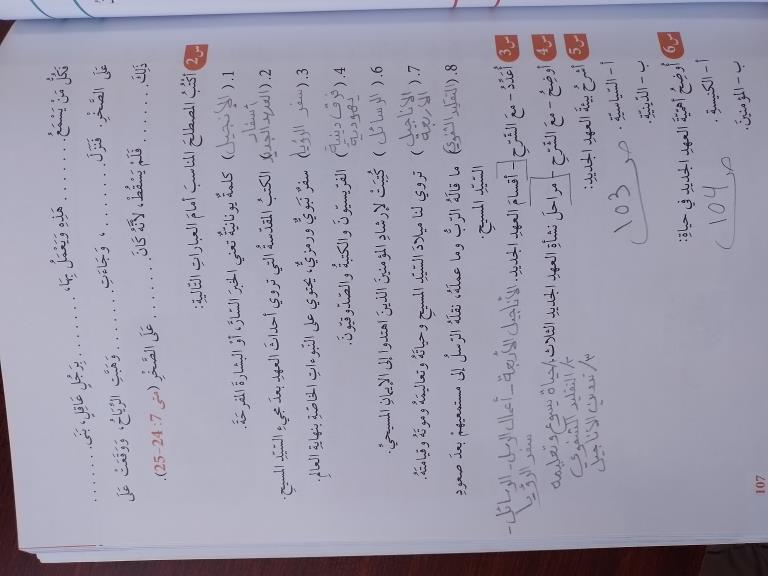 فَكُلُّ مَنْ يَسْمَعُ ........ هَذِهِ وَيَعْمَلُ بِهَا، ........ بِرَجُلٍ عَاقِلٍ، بَنَى ........
عَلَى الصَّخْرِ. فَنَزَلَ ........، وَجَاءَتِ ........ وَهَبَّتِ الرِّيَاحُ، وَوَقَعَتْ عَلَى
ذَلِكَ ........ فَلَمْ يَسْقُطْ، لِأَنَّهُ كَانَ ........ عَلَى الصَّخْرِ (متى 7: 24-25).
س2 أَكْتُبُ المصطلحَ المناسبَ أمامَ العباراتِ التَّاليةِ:
1. (الانجيل) كلمةٌ يونانيَّةٌ تعني الخبرَ السَّارَّ، أوْ البشارةَ المفرحَةَ.
2. (أسفار العهد الجديد) الكتبُ المقدّسةُ التي تروي أحداثَ العهدِ بعدَ مجيءِ السَّيّدِ المسيحِ.
3. (سفر الرؤيا) سفرٌ نبويٌّ ورمزيٌّ، يحتوي على النبوءاتِ الخاصّةِ بنهايةِ العالمِ.
4. (فرق دينية يهودية) الفرّيسيّونَ والكتبةُ والصَّدّوقيّونَ.
6. (الرسائل) كُتِبَتْ لإرشادِ المؤمنينَ الذينَ اهتدوا إلى الإيمانِ المسيحيِّ.
7. (الاناجيل الاربعة) تروي لنا ميلادَ السَّيّدِ المسيحِ وحياتَهُ وتعاليمَهُ وموتَهُ وقيامَتَهُ.
8. (التقليد الشفوي) ما قالَهُ الرّبُّ وما عملَهُ، نقلَهُ الرّسلُ إلى مستمعيهم بعدَ صعودِ
السّيّدِ المسيحِ.
س3 أُعَدِّدُ - معَ الشَّرْحِ - أقسامَ العهدِ الجديدِ. الأناجيل الأربعة - أعمال الرسل - الرسائل -
سفر الرؤيا
س4 أوضِحُ - معَ الشَّرْحِ - مراحلَ نشأةِ العهدِ الجديدِ الثلاث. ١/ حياة يسوع وتعليمه
٢/ التقليد الشفوي
٣/ تدوين الاناجيل
س5 أشرحُ بيئةَ العهدِ الجديدِ:
أ - السّياسيّةِ.
ب - الدّينيّةِ.
ص 103
س6 أُوضِحُ أهمّيّةَ العهدِ الجديدِ في حياةِ:
أ - الكنيسةِ.
ب - المؤمنينَ.
ص 104
107